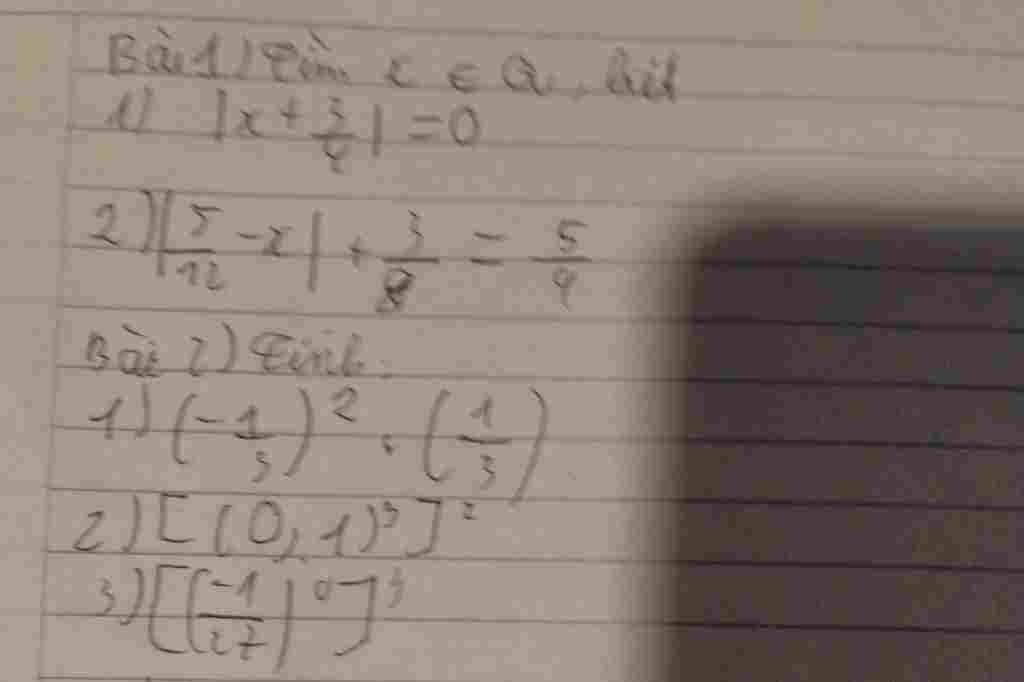 Bài 1) Tìm x ∈ Q, biết
1) |x + 3/4| = 0
2) |5/12 - x| + 3/8 = 5/4
Bài 2) Tính.
1) (-1/3)² . (1/3)
2) [(0,1)³]²
3) [(-1/27)⁰]³